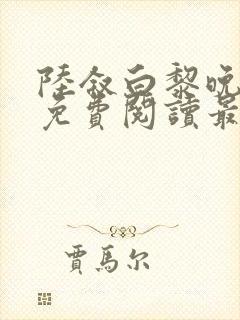 陸敘白黎晚
免費閱讀最
賈馬尔